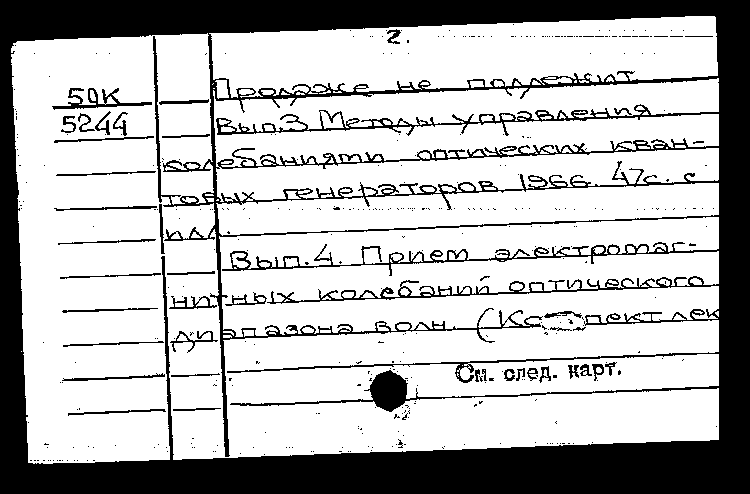 2.
50К Продаже не подлежит
5244 Вып.3 Методы управления
колебаниями оптических кван-
товых генераторов. 1966. 47с. с
илл.
Вып.4. Прием электромаг-
нитных колебаний оптического
диапазона волн. (Конспект лек
См. след. карт.